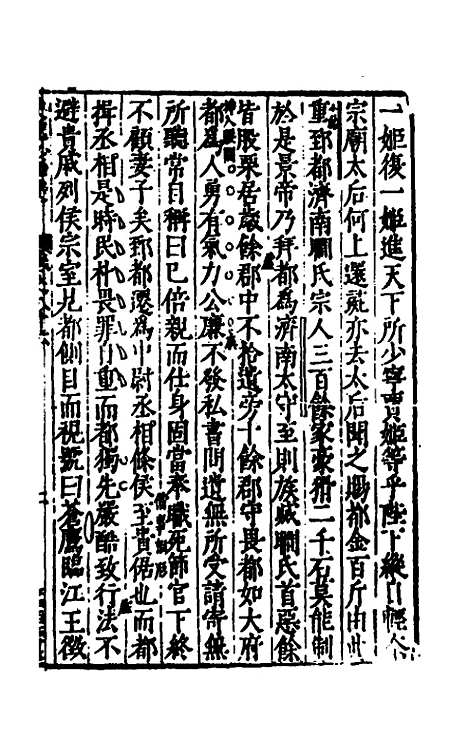 一姬復一姬進天下所少寧賈姬等乎陛下縱自輕奈
宗廟太后何上還彘亦去太后聞之賜都金百斤由此
重郅都濟南瞷氏宗人三百餘家豪猾二千石莫能制
於是景帝乃拜都爲濟南太守至則族滅瞷氏首惡餘
皆股栗居歲餘郡中不拾遺旁十餘郡守畏都如大府
都爲人勇有氣力公廉不發私書問遺無所受請寄無
所聽常自稱曰已倍親而仕身固當奉職死節官下終
不顧妻子矣郅都遷爲中尉丞相條侯至貴倨也而都
揖丞相是時民朴畏罪自重而都獨先嚴酷致行法不
避貴戚列侯宗室見都側目而視號曰蒼鷹臨江王徵